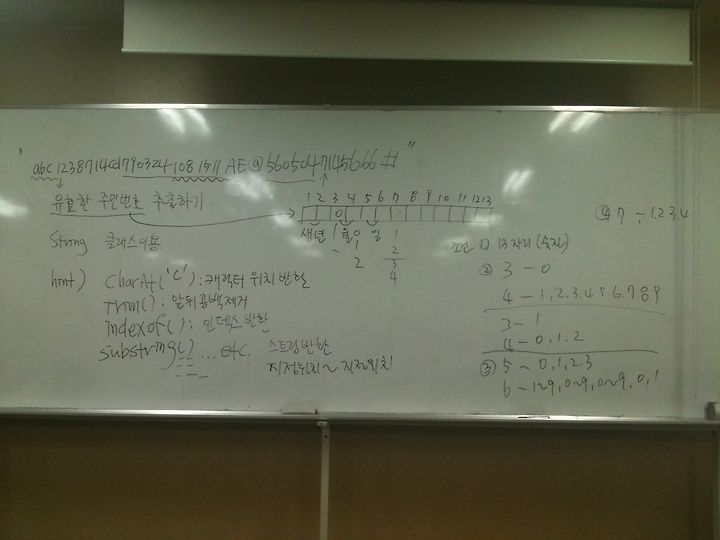 "abc1238714cd7903241081511AE@5605047145666#"
유효한 주민번호 추출하기
1 2 3 4 5 6 7 8 9 10 11 12 13
0
생년 월 일
1 0
- 1
2
1
2
3
4
String 클래스이용
hint) CharAt('C') : 캐릭터 위치반환
Trim() : 앞뒤공백제거
indexof() : 인덱스반환
substring() ... etc. 스트링반환
지정위치~지정위치
조건 ① 13자리(숫자)
② 3 - 0
4 - 1,2,3,4,5,6,7,8,9
3 - 1
4 - 0,1,2
③ 5 - 0,1,2,3
6 - 1~9, 0~9, 0~9, 0,1
④ 7 - 1,2,3,4